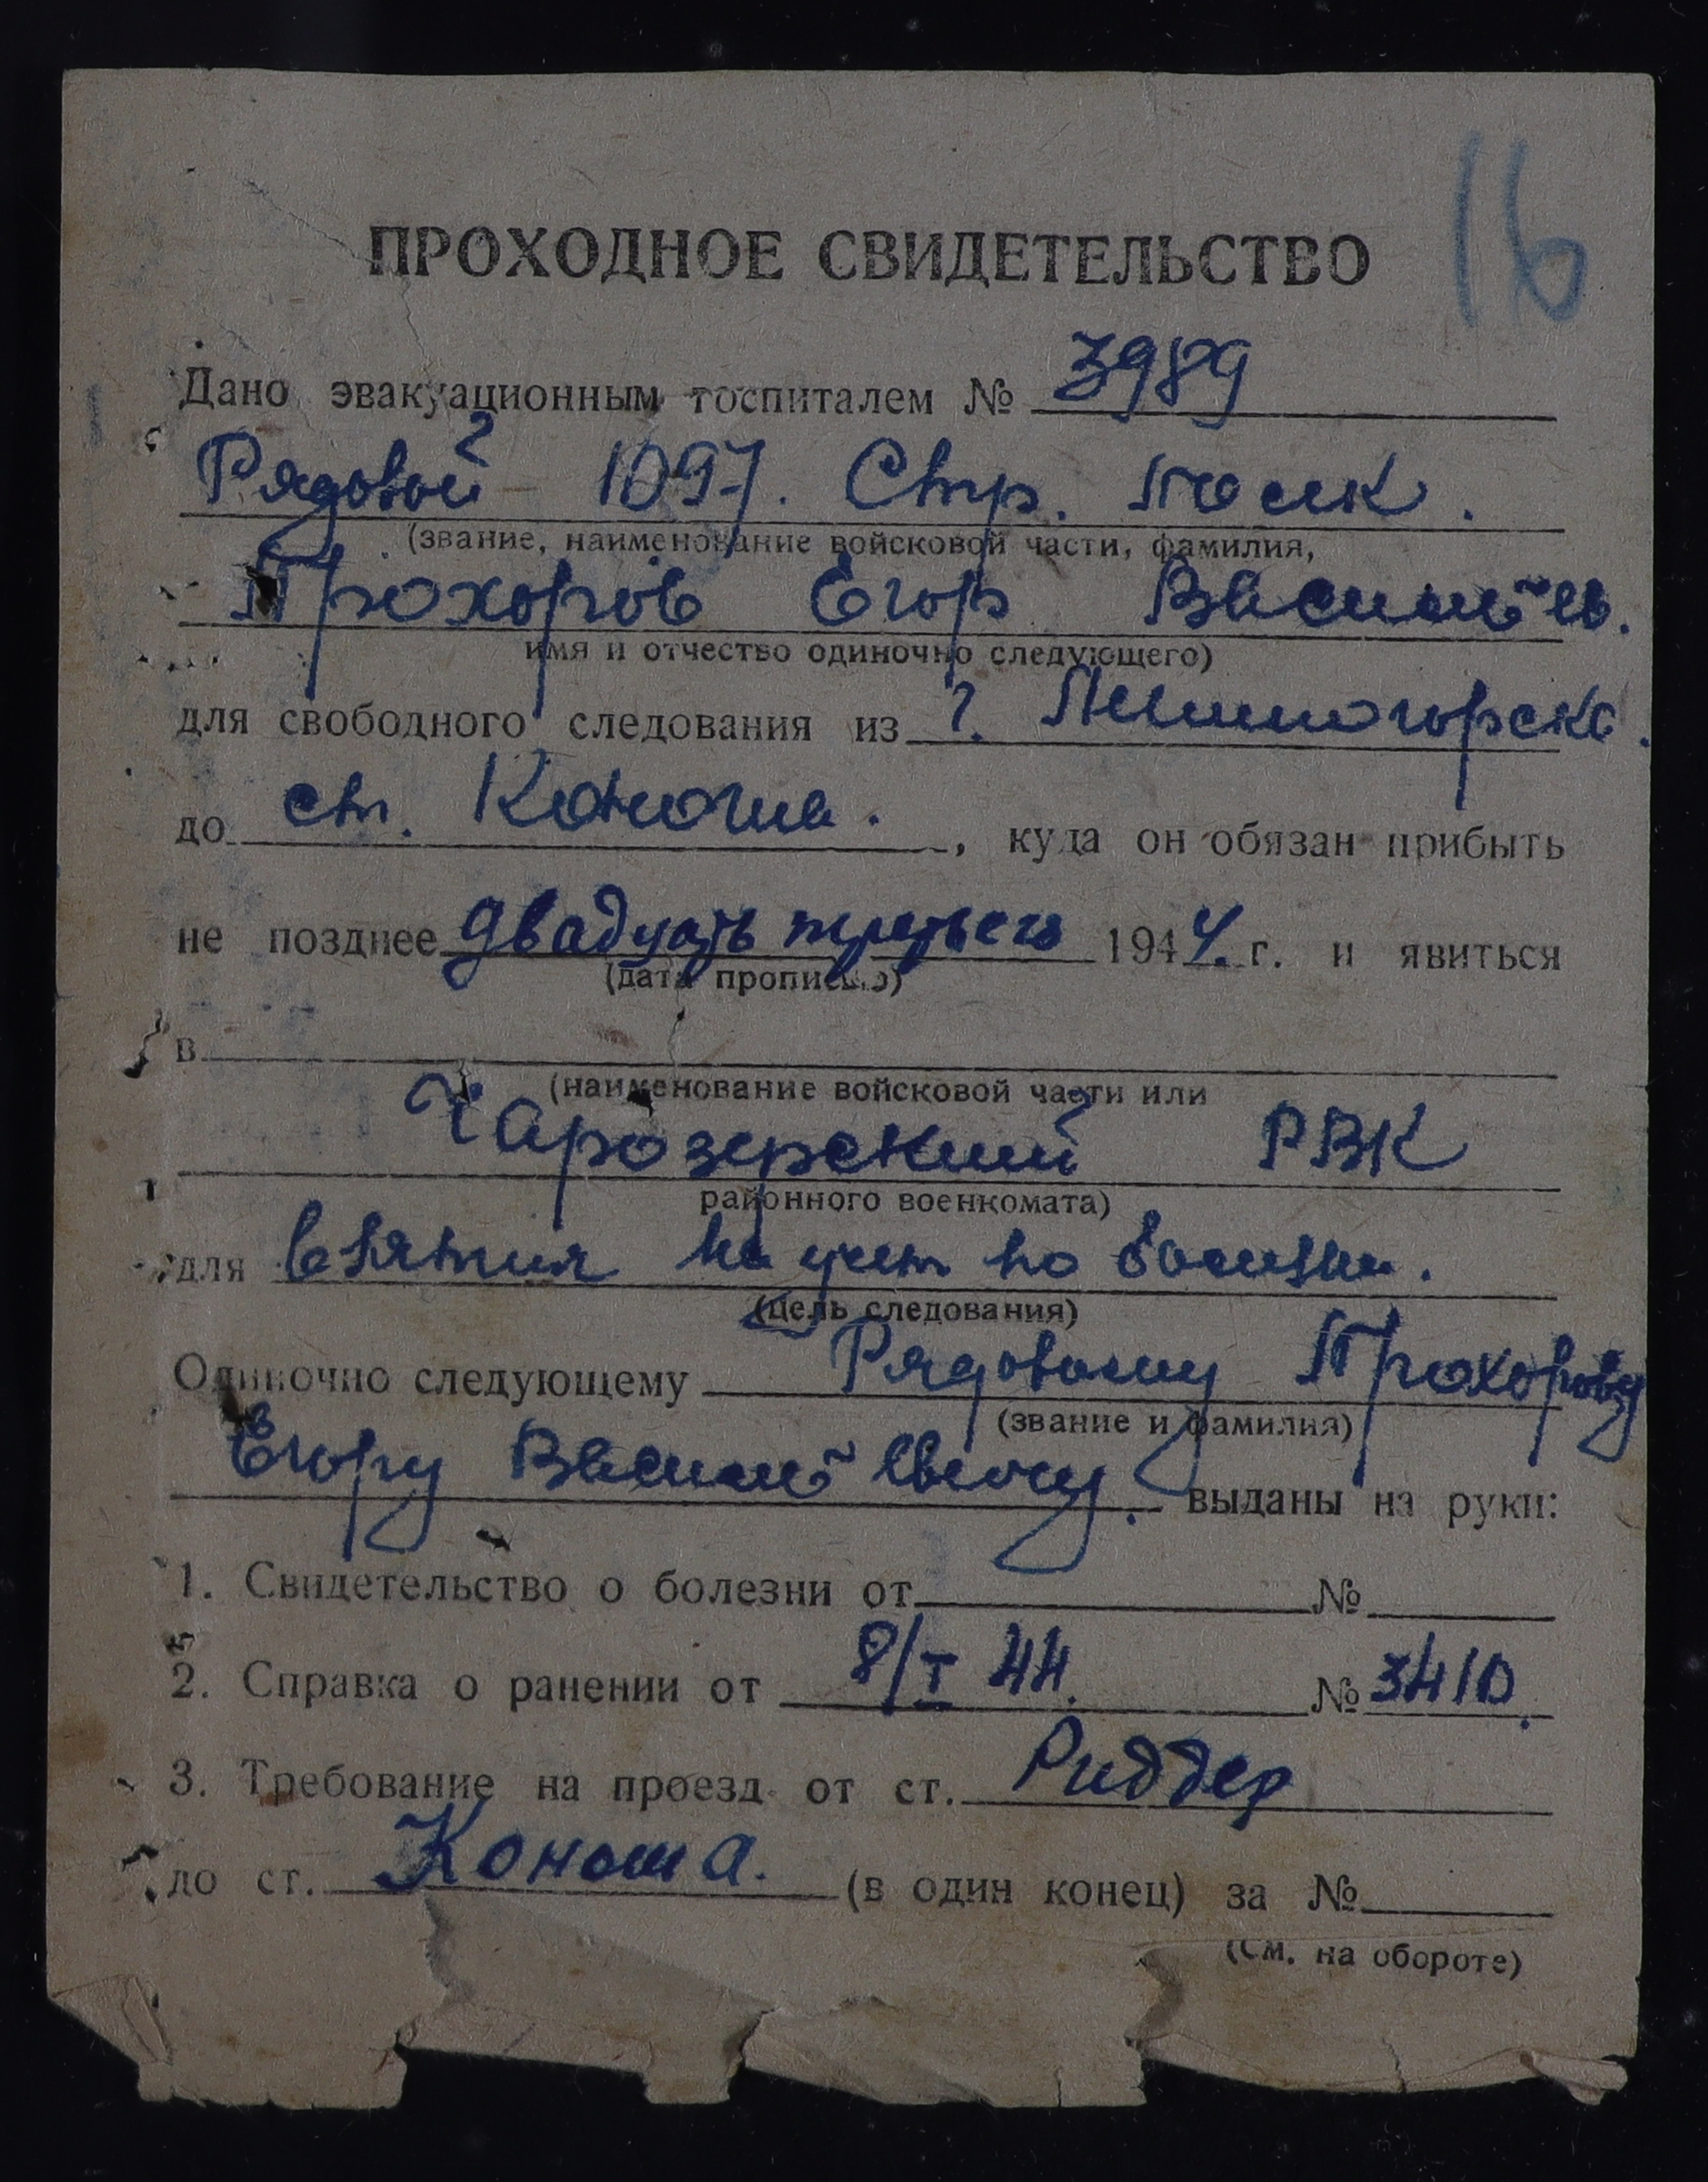 16
ПРОХОДНОЕ СВИДЕТЕЛЬСТВО
Дано эвакуационным госпиталем № 3989
Рядовой 1097. Стр. полк.
(звание, наименование войсковой части, фамилия,
Прохоров Егор Васильев.
имя и отчество одиночно следующего)
для свободного следования из г. Лениногорска.
до ст. Коноша. , куда он обязан прибыть
не позднее двадцать третьего 1944. г. и явиться
(дата прописью)
в
(наименование войсковой части или
Чарозерский РВК
районного военкомата)
для взятия на учет по болезни.
(цель следования)
Одиночно следующему Рядовому Прохорову
(звание и фамилия)
Егору Васильевичу. выданы на руки:
1. Свидетельство о болезни от №
2. Справка о ранении от 8/I 44. № 3410.
3. Требование на проезд от ст. Риддер
до ст. Коноша. (в один конец) за №
(См. на обороте)